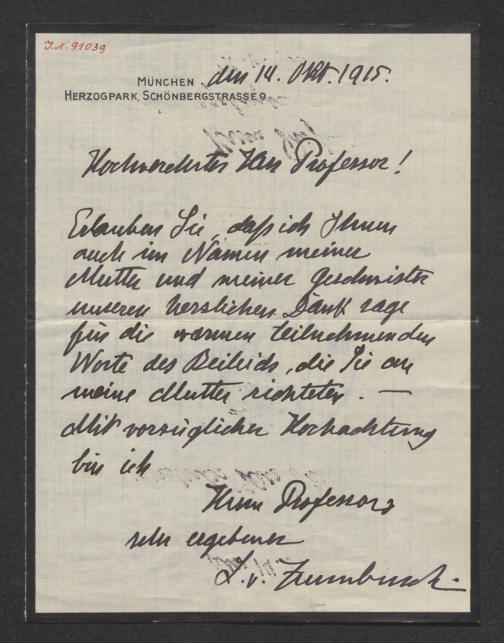 J.N. 91039
MÜNCHEN den 14. Okt. 1915.
HERZOGPARK, SCHÖNBERGSTRASSE 9.
Hochverehrter Herr Professor!
Erlauben Sie, daß ich Ihnen
auch im Namen meiner
Mutter und meiner Geschwister
unseren herzlichen Dank sage
für die warmen teilnehmenden
Worte des Beileids, die Sie an
meine Mutter richteten. —
Mit vorzüglicher Hochachtung
bin ich
Herrn Professors
sehr ergebener
L. v. Zumbusch.